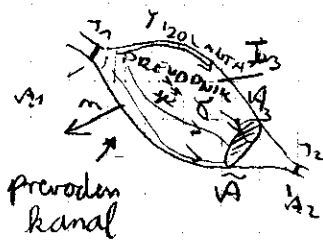 J₁
IZOLANTA
J₃
PREVODNIK
A₁
A₃
γ
n
J₂
Ã
A₂
prevoden
kanal